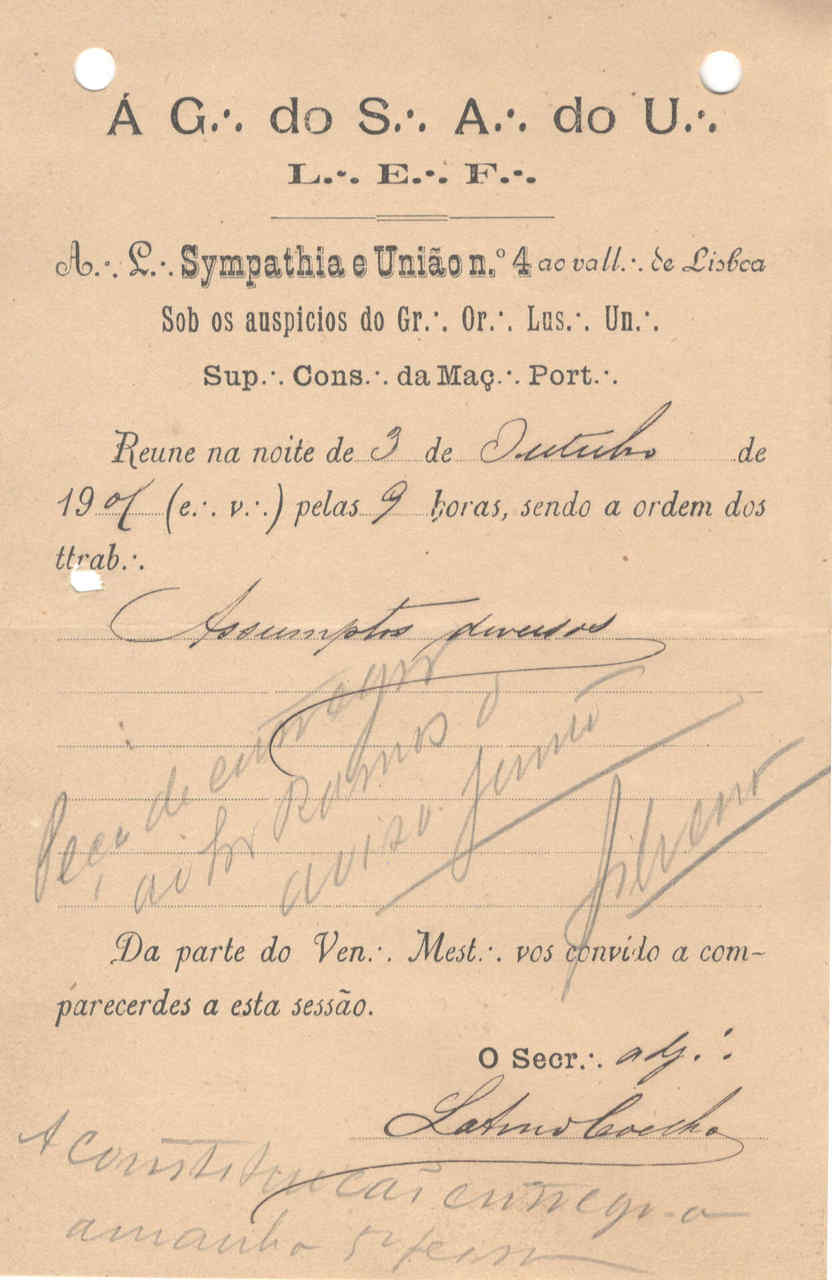 Á G.·. do S.·. A.·. do U.·.
L.·. E.·. F.·.
A.·. L.·. Sympathia e União n.º 4 ao vall.·. de Lisboa
Sob os auspicios do Gr.·. Or.·. Lus.·. Un.·.
Sup.·. Cons.·. da Maç.·. Port.·.
Reune na noite de 3 de Outubro de
190 (e.·. v.·.) pelas 9 horas, sendo a ordem dos
ttrab.·.
Assumptos diversos
Peço de entregar
ao Ramos o
aviso junto
Silverio
Da parte do Ven.·. Mest.·. vos convido a com-
parecerdes a esta sessão.
O Secr.·. adj.·.
Latino Coelho
A constituição entrego-a
amanhã 5ª feira